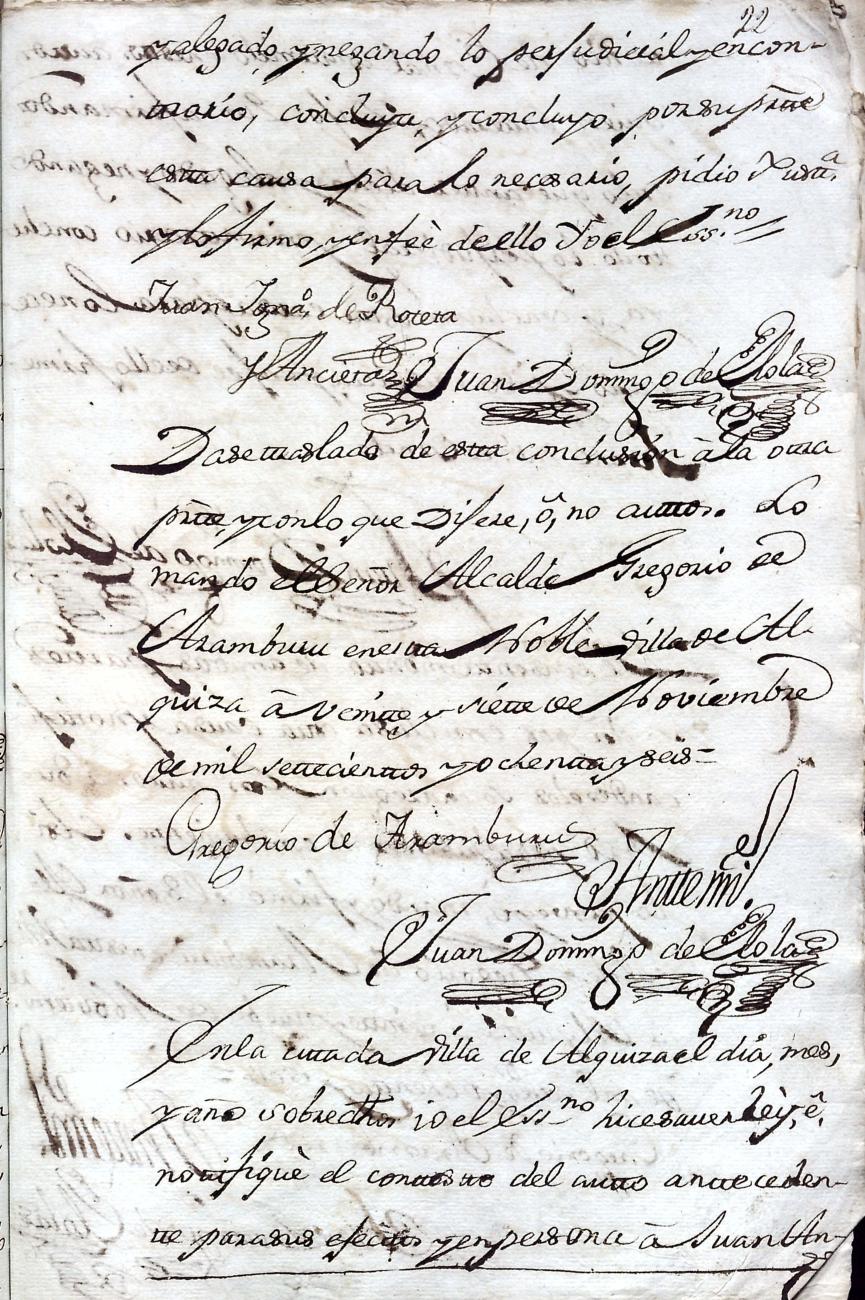 22
y alegado, y negando lo persudicial y encon-
trario, concluya, y concluyo por su prtte
estta causa para lo necesario, pidio Justta
y lo firmo, y en feè de ello Yo el Ess.no
Juan Igna.o de Roteta
y Ancieta
Juan Domingo de Elola
Dase traslado de estta conclusion â la otra
prtte, y con lo que Dijere, ô, no auttos. Lo
mando el Señor Alcalde Gregorio de
Aramburu en esta Noble Villa de Al-
quiza â veintte y siette de Noviembre
de mil settecienttos y ochentta y seis=
Gregorio de Aramburu
Antte mi
Juan Domingo de Elola
En la citada Villa de Alquiza el dia, mes,
y año sobredhos io el Ess.no hice sauer leỳ, ê,
nottifiquè el conttestto del autto antteceden-
tte para sus efecttos y en persona â Juan An-